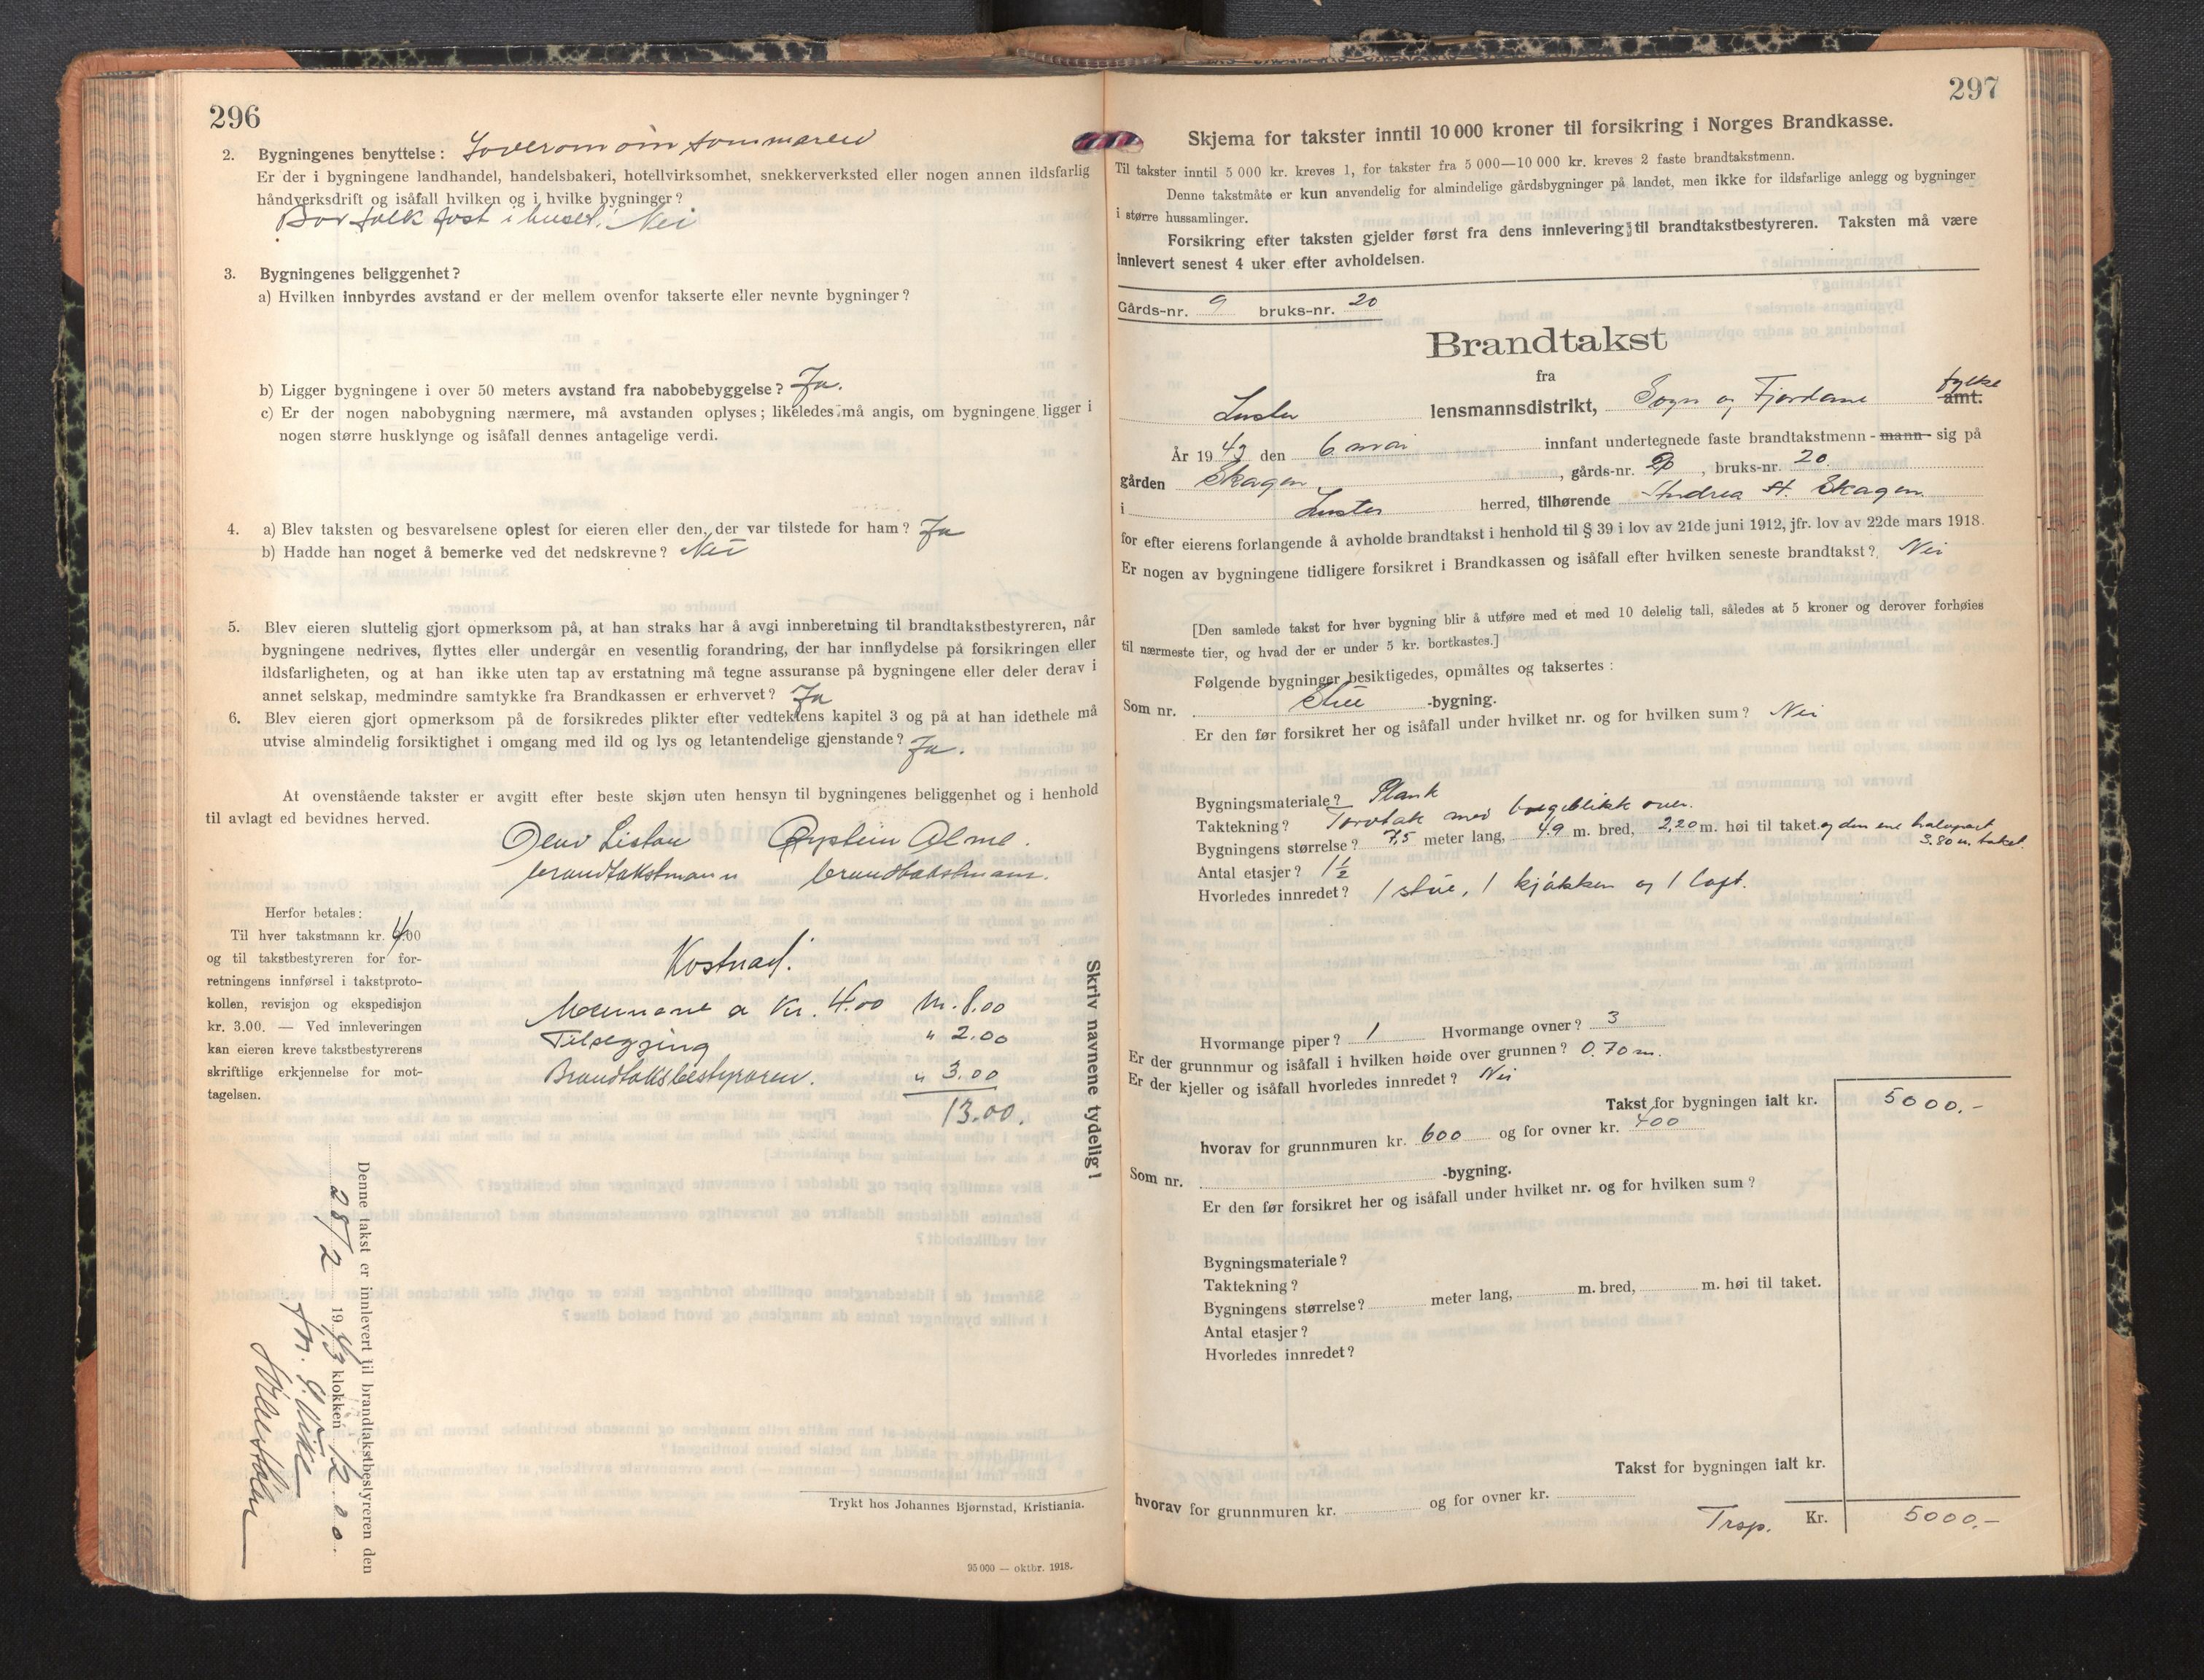 296
2. Bygningenes benyttelse: Soverom om sommaren
Er der i bygningene landhandel, handelsbakeri, hotellvirksomhet, snekkerverksted eller nogen annen ildsfarlig
håndverksdrift og isåfall hvilken og i hvilke bygninger?
Bor folk fast i huset? Nei
3. Bygningenes beliggenhet?
a) Hvilken innbyrdes avstand er der mellem ovenfor takserte eller nevnte bygninger?
b) Ligger bygningene i over 50 meters avstand fra nabobebyggelse? Ja.
c) Er der nogen nabobygning nærmere, må avstanden oplyses; likeledes må angis, om bygningene ligger i
nogen større husklynge og isåfall dennes antagelige verdi.
4. a) Blev taksten og besvarelsene oplest for eieren eller den, der var tilstede for ham? Ja
b) Hadde han noget å bemerke ved det nedskrevne? Nei
5. Blev eieren sluttelig gjort opmerksom på, at han straks har å avgi innberetning til brandtakstbestyreren, når
bygningene nedrives, flyttes eller undergår en vesentlig forandring, der har innflydelse på forsikringen eller
ildsfarligheten, og at han ikke uten tap av erstatning må tegne assuranse på bygningene eller deler derav i
annet selskap, medmindre samtykke fra Brandkassen er erhvervet? Ja
6. Blev eieren gjort opmerksom på de forsikredes plikter efter vedtektens kapitel 3 og på at han idethele må
utvise almindelig forsiktighet i omgang med ild og lys og letantendelige gjenstande? Ja.
At ovenstående takster er avgitt efter beste skjøn uten hensyn til bygningenes beliggenhet og i henhold
til avlagt ed bevidnes herved.
Øystein Alme.
brandtakstmann brandtakstmann.
Herfor betales:
Til hver takstmann kr. 4.00
og til takstbestyreren for for-
retningens innførsel i takstproto-
kollen, revisjon og ekspedisjon
kr. 3.00. — Ved innleveringen
kan eieren kreve takstbestyrerens
skriftlige erkjennelse for mot-
tagelsen.
Kostnad.
a Kr. 4.00 kr. 8.00
Tilsegging " 2.00
Brandtakstbestyraren. " 3.00
13.00.
Skriv navnene tydelig!
Denne takst er innlevert til brandtakstbestyreren den
28/2 1943 klokken 12.00.
Trykt hos Johannes Bjørnstad, Kristiania.
95 000 — oktbr. 1918.
297
Skjema for takster inntil 10 000 kroner til forsikring i Norges Brandkasse.
Til takster inntil 5 000 kr. kreves 1, for takster fra 5 000—10 000 kr. kreves 2 faste brandtakstmenn.
Denne takstmåte er kun anvendelig for almindelige gårdsbygninger på landet, men ikke for ildsfarlige anlegg og bygninger
i større hussamlinger.
Forsikring efter taksten gjelder først fra dens innlevering til brandtakstbestyreren. Taksten må være
innlevert senest 4 uker efter avholdelsen.
Gårds-nr. 9 bruks-nr. 20
Brandtakst
fra
Luster lensmannsdistrikt, Sogn og Fjordane fylke amt.
År 1943 den 6 mai innfant undertegnede faste brandtakstmenn - mann - sig på
gården Skagen, gårds-nr. 9, bruks-nr. 20.
i Luster herred, tilhørende Andrea A. Skagen
for efter eierens forlangende å avholde brandtakst i henhold til § 39 i lov av 21de juni 1912, jfr. lov av 22de mars 1918.
Er nogen av bygningene tidligere forsikret i Brandkassen og isåfall efter hvilken seneste brandtakst? Nei
[Den samlede takst for hver bygning blir å utføre med et med 10 delelig tall, således at 5 kroner og derover forhøies
til nærmeste tier, og hvad der er under 5 kr. bortkastes.]
Følgende bygninger besiktigedes, opmåltes og taksertes:
Som nr. Stue -bygning.
Er den før forsikret her og isåfall under hvilket nr. og for hvilken sum? Nei
Bygningsmateriale? Plank
Taktekning? Torvtak med bølgeblikk over.
Bygningens størrelse? 7,5 meter lang, 4.9 m. bred, 2,20 m. høi til taket. og den ene halvpart
3.80 m. taket.
Antal etasjer? 1½
Hvorledes innredet? 1 stue, 1 kjøkken og 1 loft.
Hvormange piper? 1 Hvormange ovner? 3
Er der grunnmur og isåfall i hvilken høide over grunnen? 0.70 m.
Er der kjeller og isåfall hvorledes innredet? Nei
Takst for bygningen ialt kr. 5000.-
hvorav for grunnmuren kr. 600 og for ovner kr. 400
Som nr. -bygning.
Er den før forsikret her og isåfall under hvilket nr. og for hvilken sum?
Bygningsmateriale?
Taktekning?
Bygningens størrelse? meter lang, m. bred, m. høi til taket.
Antal etasjer?
Hvorledes innredet?
Takst for bygningen ialt kr.
hvorav for grunnmuren kr. og for ovner kr.
Trsp. Kr. 5000.-